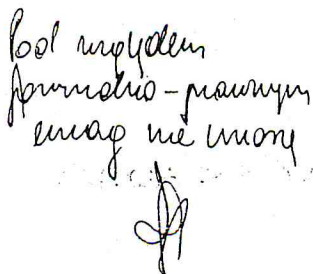 Pod względem
formalno-prawnym
uwag nie wnoszę